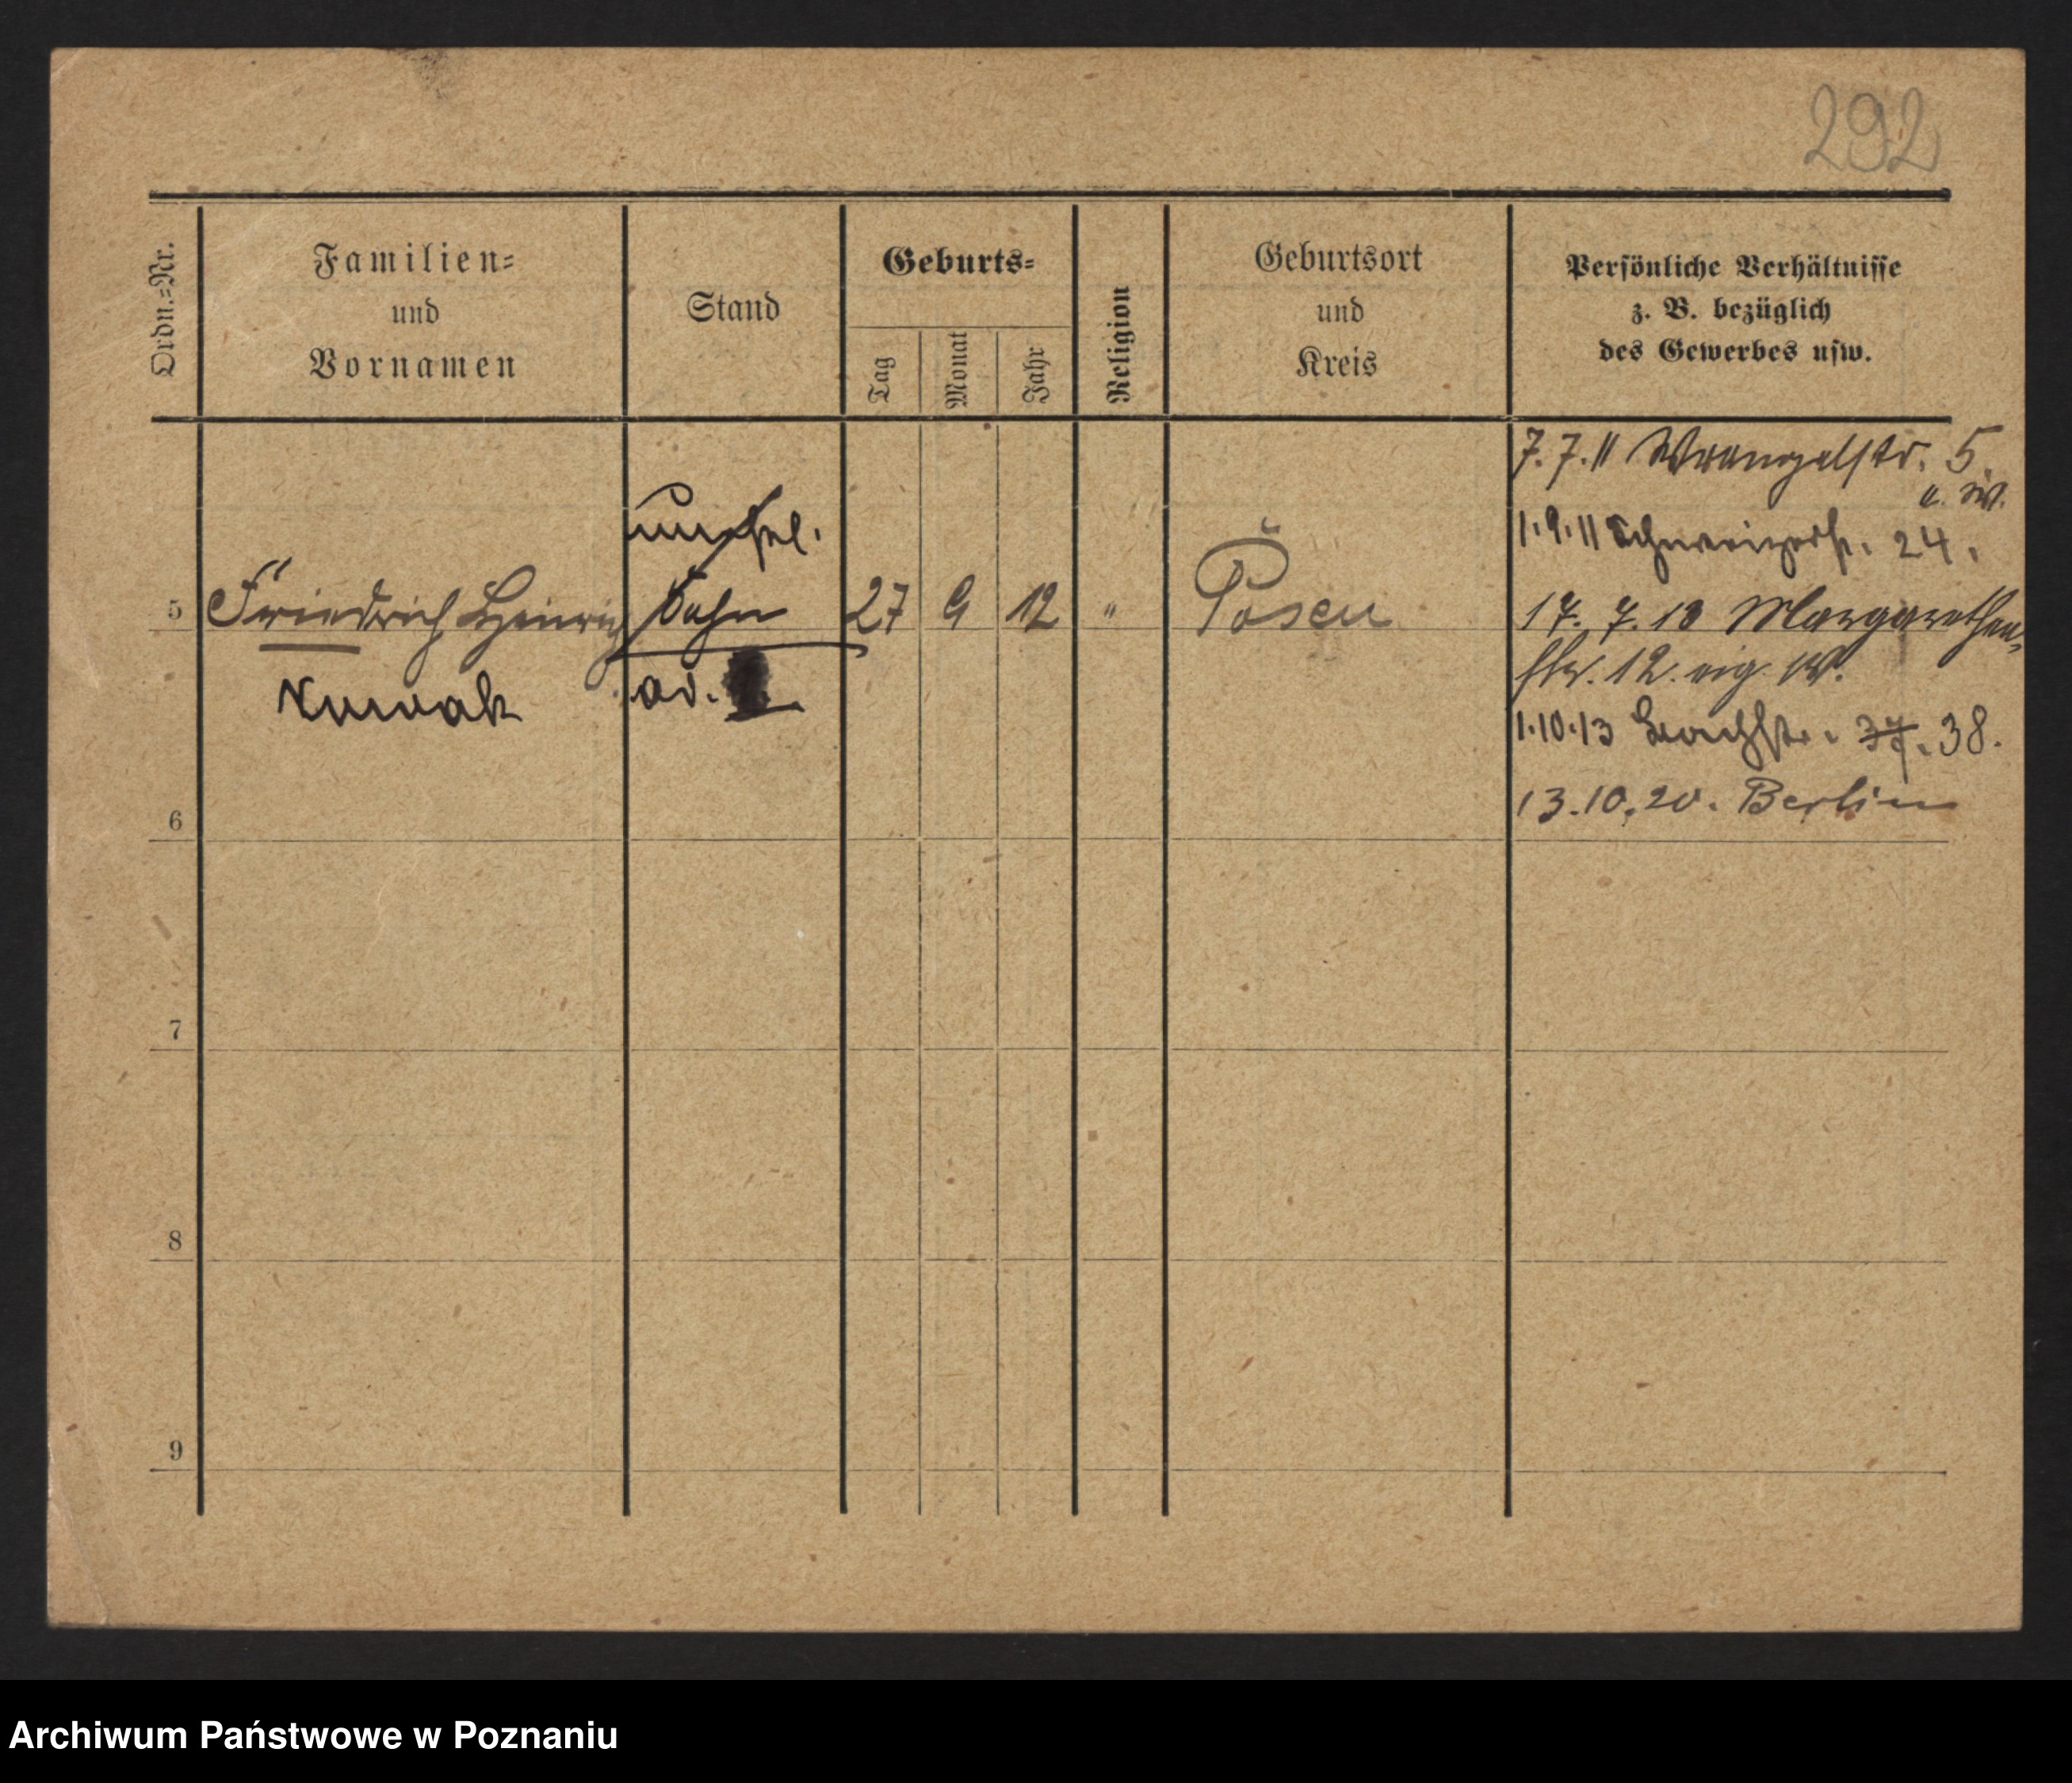 292
Ordn.=Nr.
Familien=
und
Vornamen
Stand
Geburts=
Tag
Monat
Jahr
Religion
Geburtsort
und
Kreis
Persönliche Verhältnisse
z. B. bezüglich
des Gewerbes usw.
7.7.11 Wrangelstr. 5.
1.9.11 24.
5 Friedrich Heinrich Sohn 27 9 12 " Posen
17. 7. 13 Margarethen
str. 12. eig. W.
Nowak
1.10.13 37. 38.
13.10.20. Berlin
6
7
8
9
Archiwum Państwowe w Poznaniu